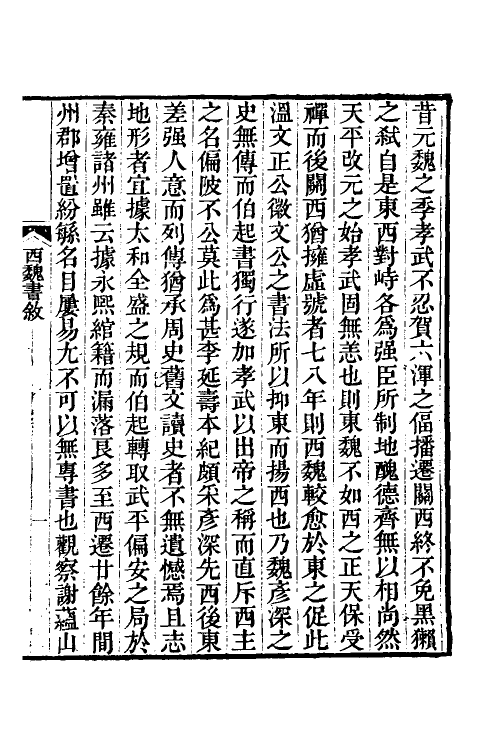 昔元魏之季孝武不忍賀六渾之偪播遷關西終不免黑獺
之弒自是東西對峙各爲强臣所制地醜德齊無以相尚然
天平改元之始孝武固無恙也則東魏不如西之正天保受
禪而後關西猶擁虛號者七八年則西魏較愈於東之促此
溫文正公徽文公之書法所以抑東而揚西也乃魏彥深之
史無傳而伯起書獨行遂加孝武以出帝之稱而直斥西主
之名偏陂不公莫此爲甚李延壽本紀頗采彥深先西後東
差强人意而列傳猶承周史舊文讀史者不無遺憾焉且志
地形者宜據太和全盛之規而伯起轉取武平偏安之局於
秦雍諸州雖云據永熙綰籍而漏落艮多至西遷廿餘年間
州郡增置紛緐名目屢易尤不可以無專書也觀察謝藴山
西魏書敘
一